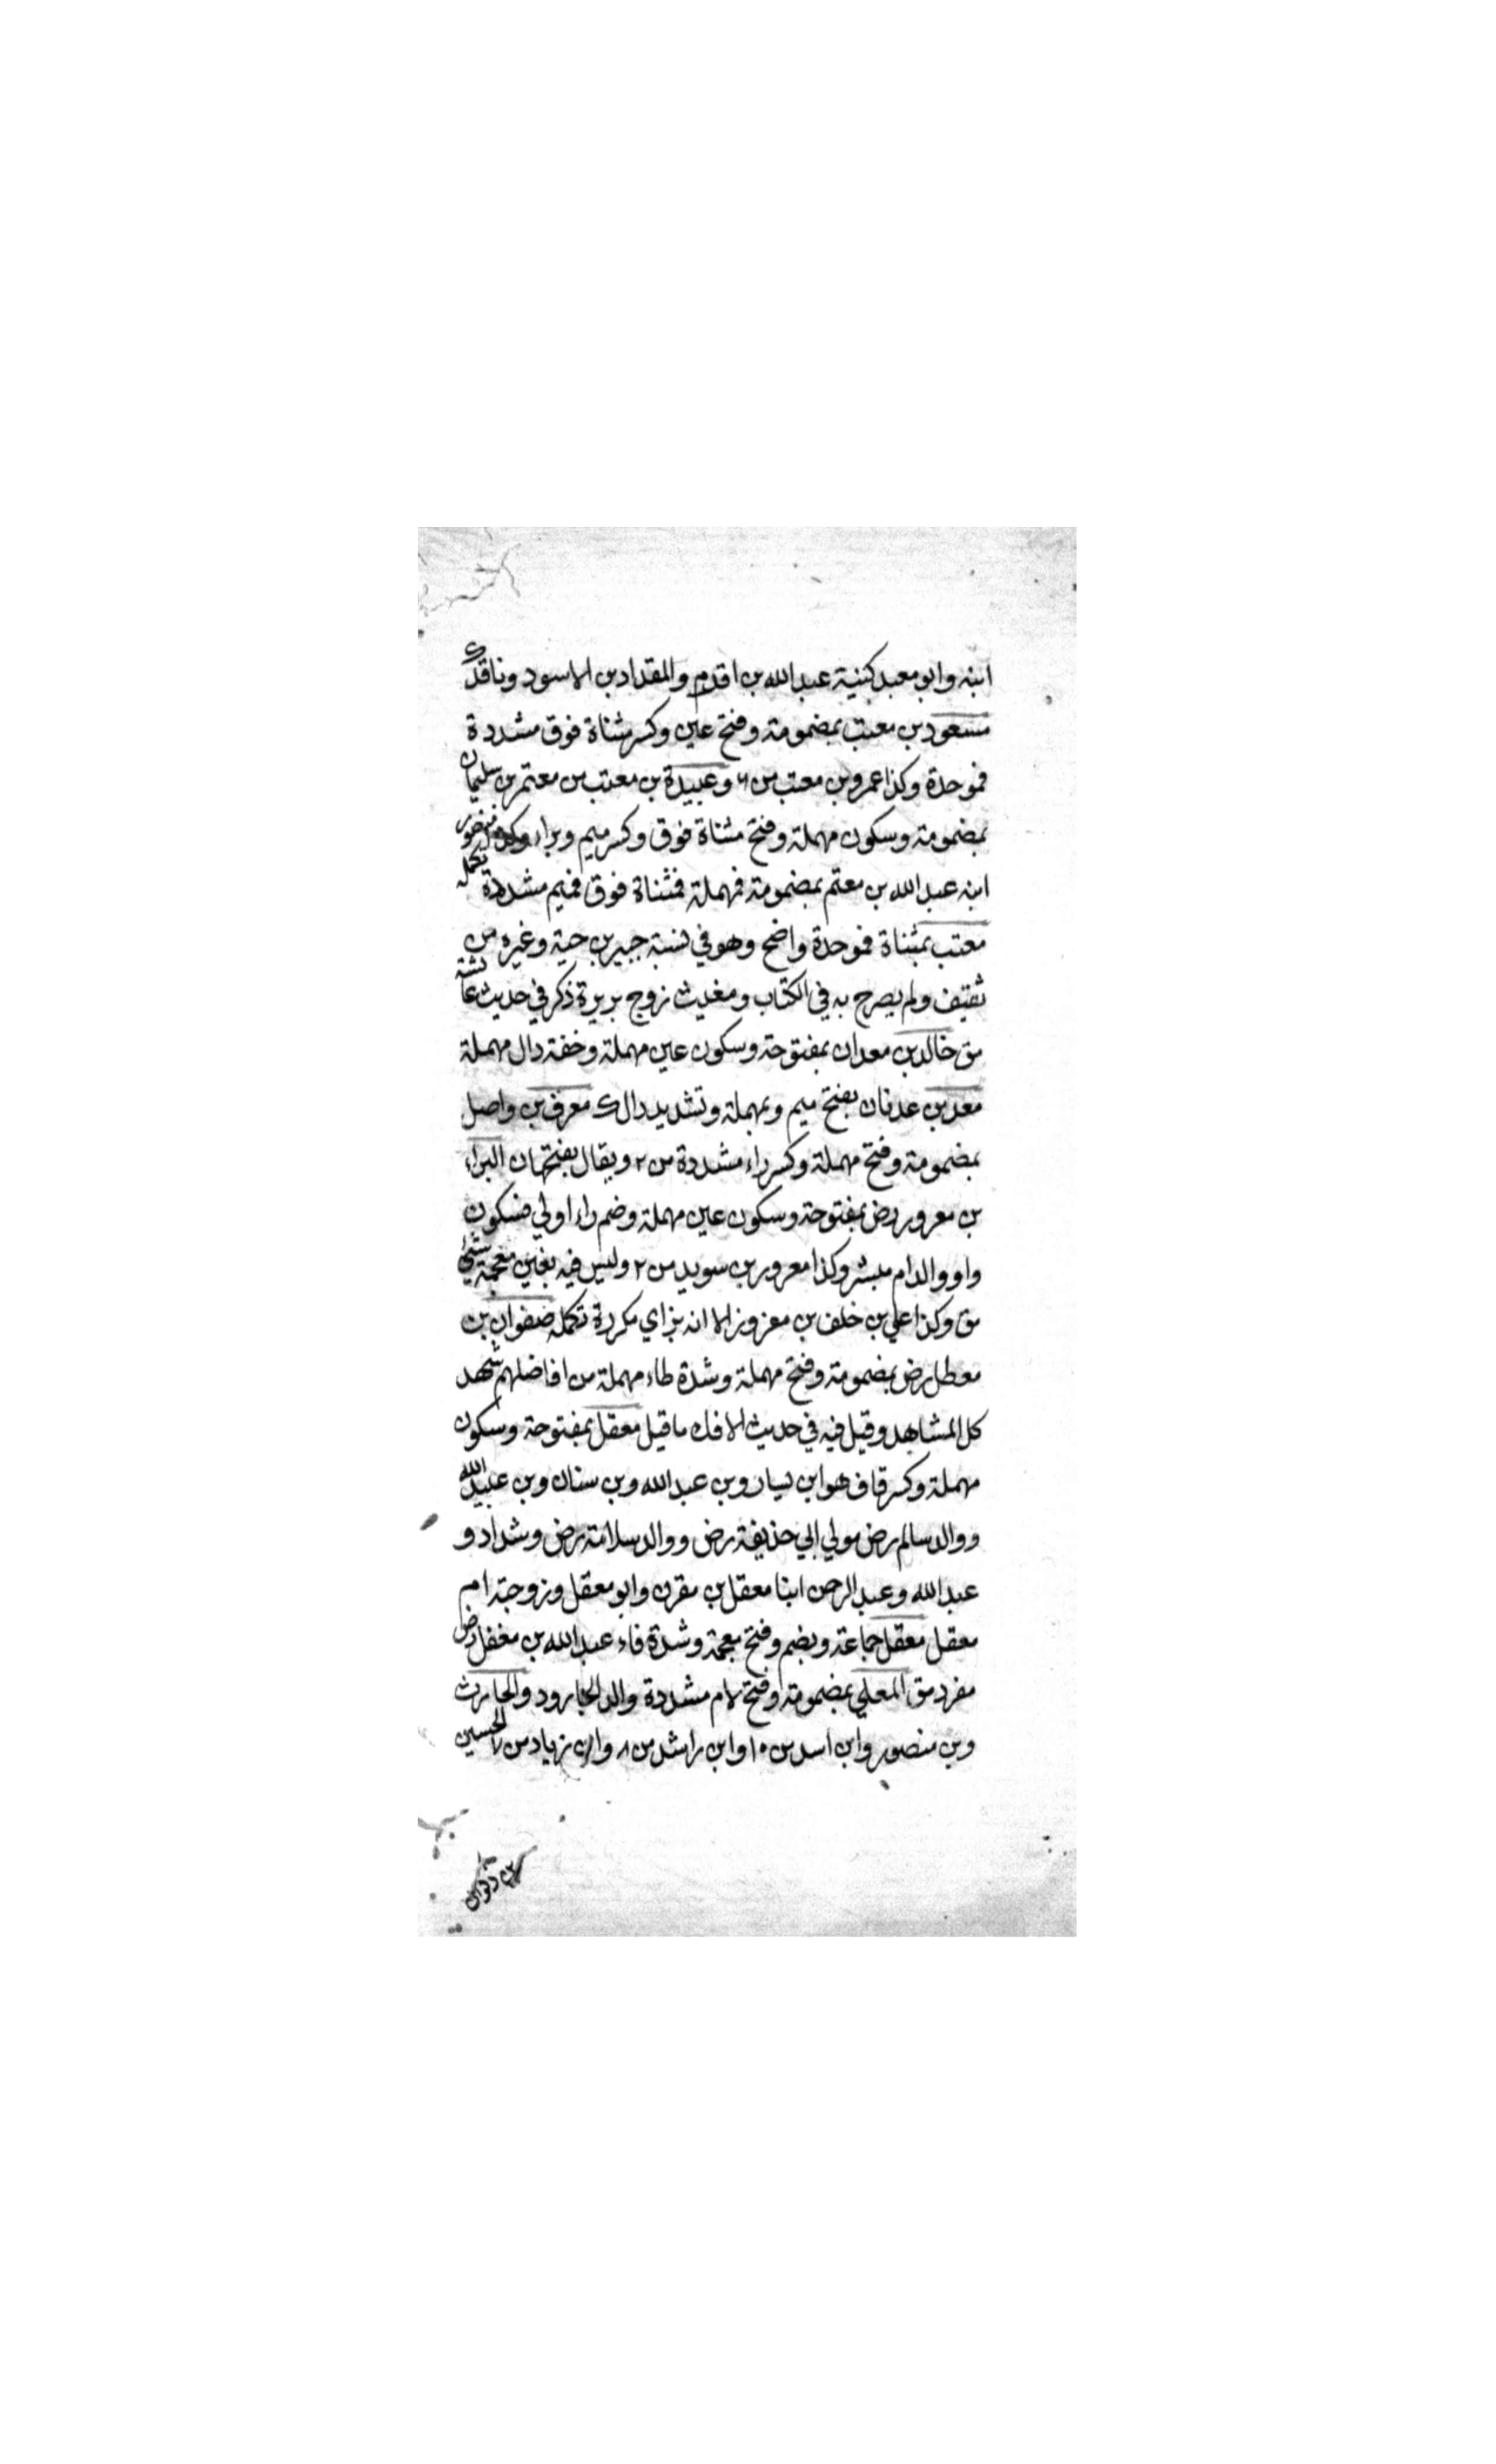 ابنه وابو معبد كنية عبد الله بن اقدم والمقداد بن الاسود وناقد ك
مسعود بن معتب بمضمومة وفتح عين وكسر مثناة فوق مشددة
فموحدة وكذا عمرو بن معتب من ٦ وعبيدة بن معتب س معتمر بن سليمان
بمضمومة وسكون مهملة وفتح مثناة فوق وكسر ميم وبراء وكذا
ابنه عبد الله بن معتم بمضمومة فمهملة فمثناة فوق فميم مشددة تكمله
معتب بمثناة فموحدة واضح وهو في نسبة جبير بن حية وغيره من
ثقيف ولم يصرح به في الكتاب ومغيث زوج بريرة ذكر في حديث عائشة
مق خالد بن معدان بمفتوحة وسكون عين مهملة وخفة دال مهملة
معد بن عدنان بفتح ميم وبمهملة وتشديد دال ك معرف بن واصل
بمضمومة وفتح مهملة وكسر راء مشددة من ٢ ويقال بفتحها ن البراء
بن معرور رض بمفتوحة وسكون عين مهملة وضم راء اولي فسكون
واو والد ام مبشر وكذا معرور بن سويد من ٢ وليس فيه بغين معجمة شئ
مق وكذا علي بن خلف بن معزوز الا انه بزاي مكررة تكمله صفوان بن
معطل رض بمضمومة وفتح مهملة وشدة طاء مهملة من افاضلهم شهد
كل المشاهد وقيل فيه في حديث الافك ما قيل معقل بمفتوحة وسكون
مهملة وكسر قاف هو ابن يسار وبن عبد الله وبن سنان وبن عبيد الله
ووالد سالم رض مولي ابي حذيفة رض ووالد سلامة رض وشداد و
عبد الله وعبد الرحمن ابنا معقل بن مقرن وابو معقل وزوجته ام
معقل معقل جماعة وبضم وفتح معجمة وشدة فاء عبد الله بن مغفل رض
مفرد مق المعلي بمضمومة وفتح لام مشددة والد الجارود والحارث
وبن منصور وابن اسد من ١٠ وابن راشد من ٨ وابن زياد من الحسين